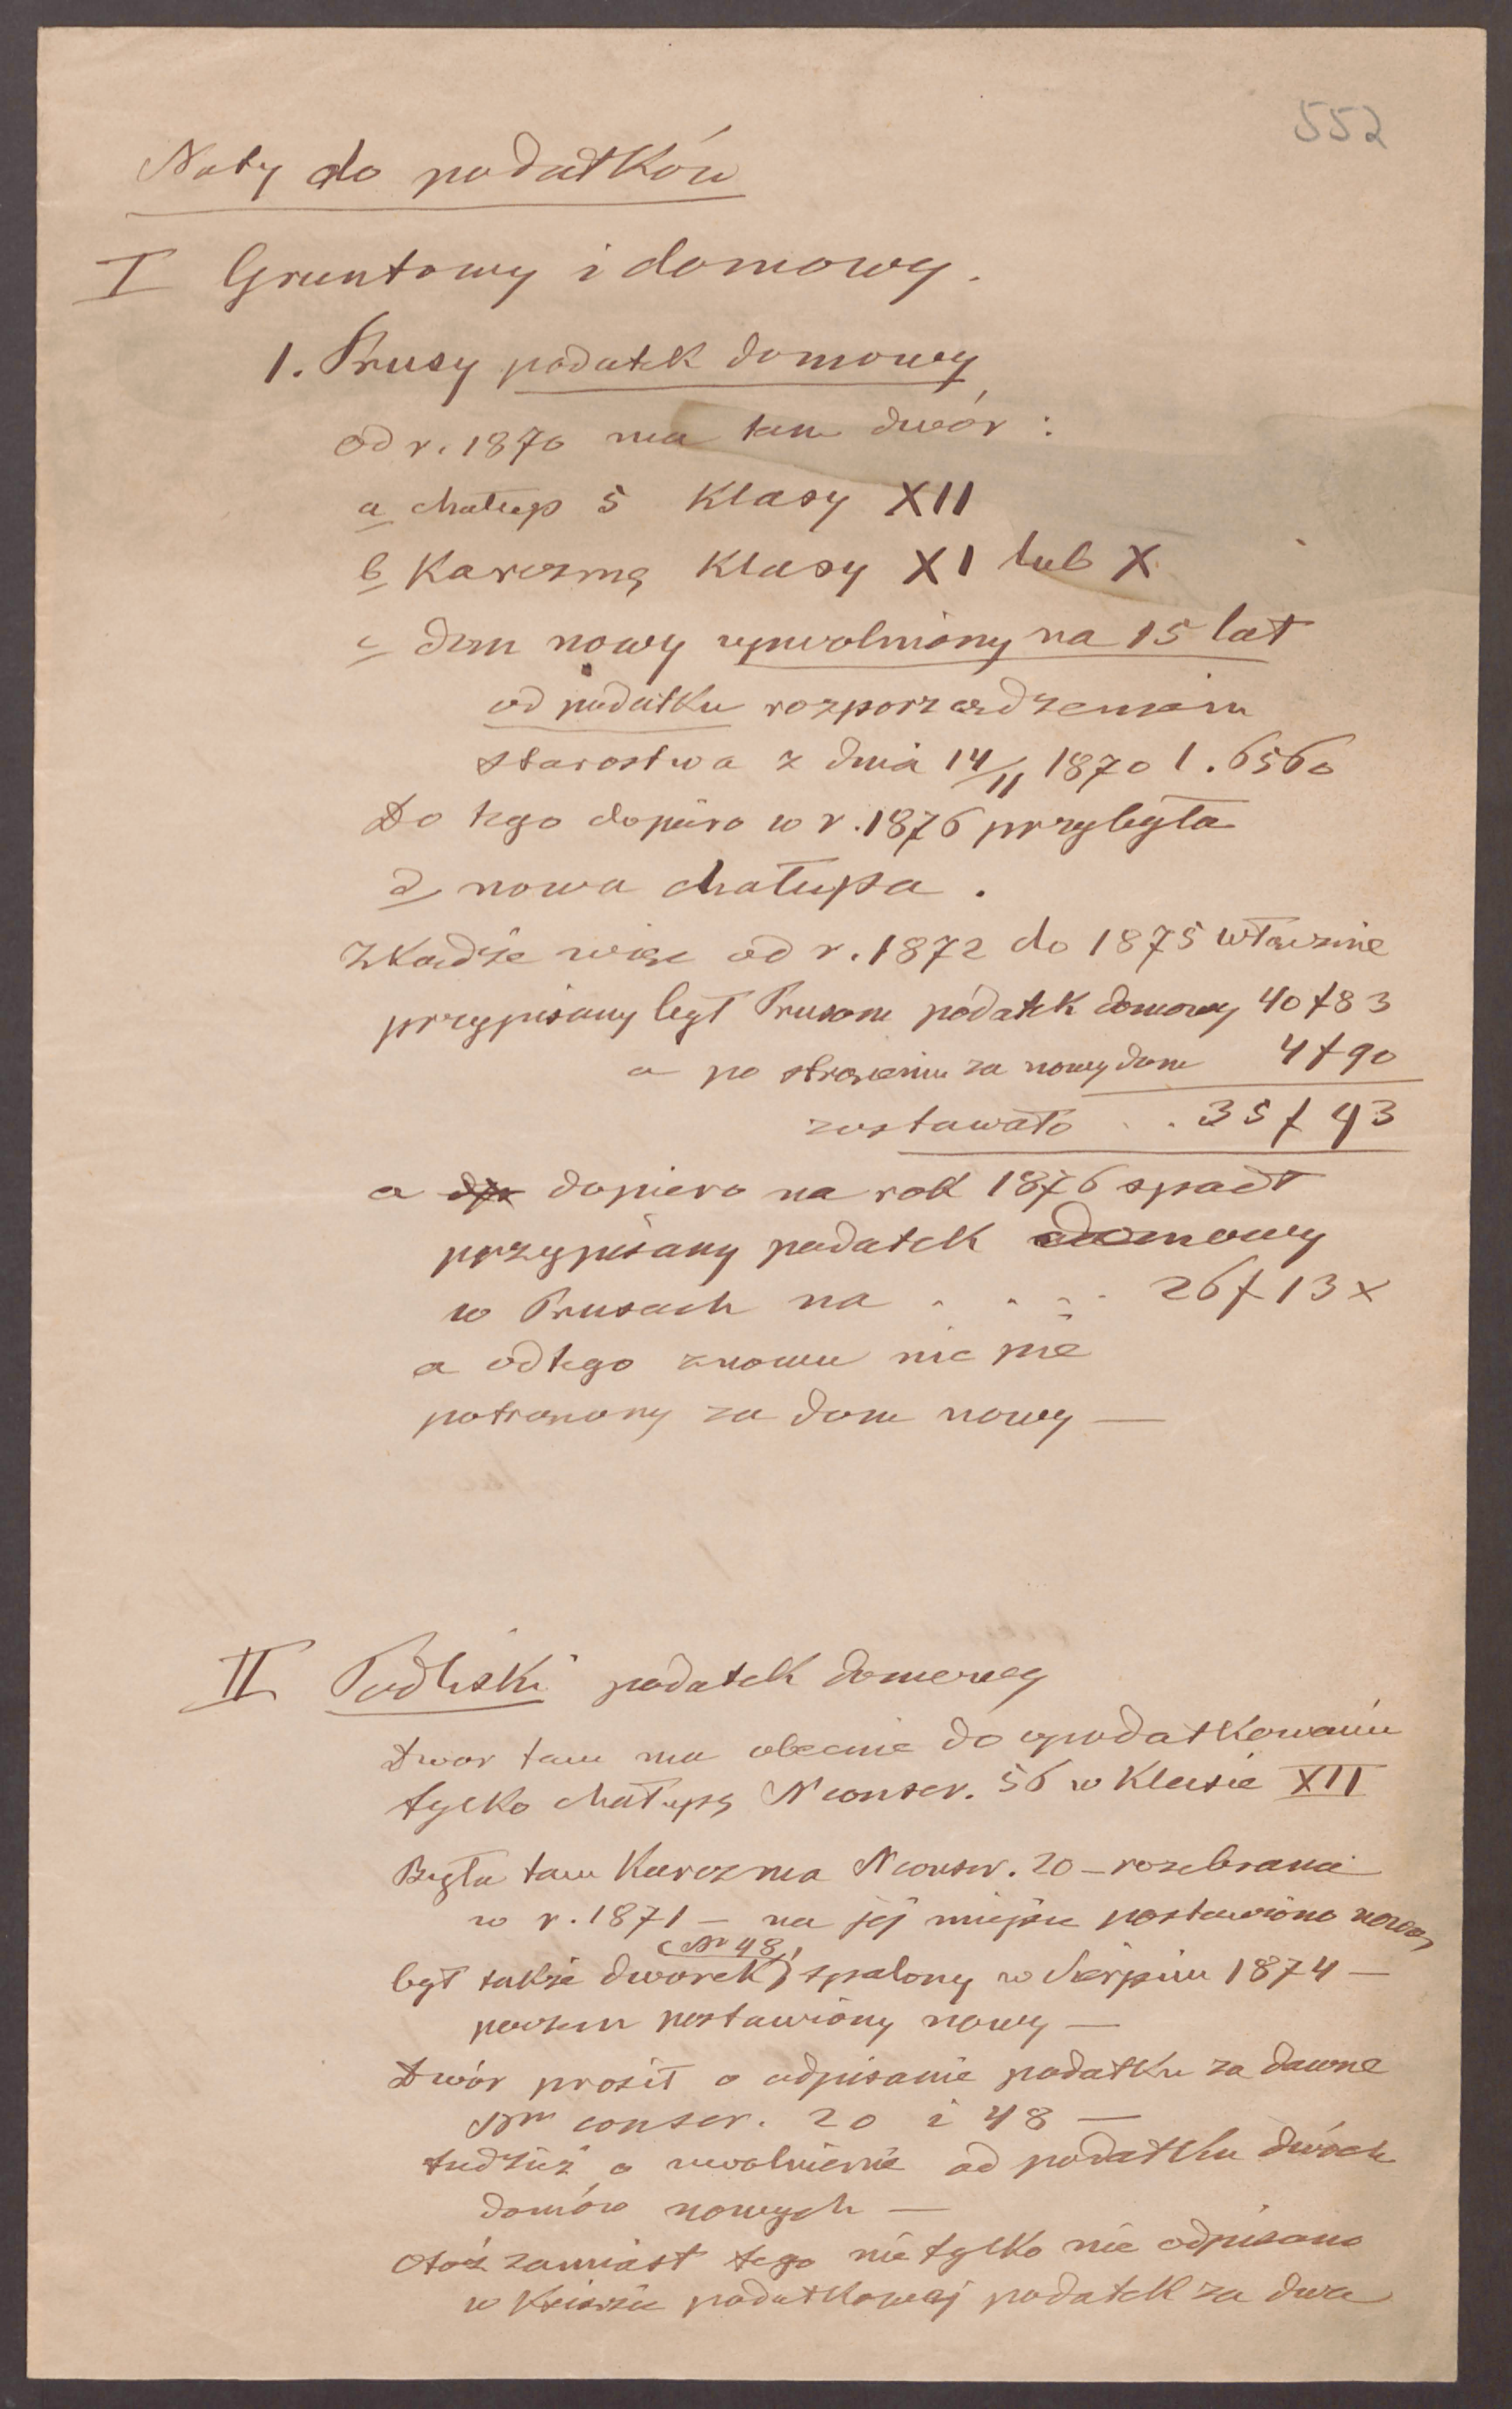 552
Noty do podatków
I Gruntowy i domowy.
1. Prusy podatek domowy
od r. 1870 ma tam dwór :
a chałup 5 Klasy XII
b Karczmę Klasy XI lub X
c dom nowy uwolniony na 15 lat
od podatku rozporządzeniem
starostwa z dnia 14/11 1870 l. 6560
Do tego dopiero w r. 1876 przybyła
d nowa chałupa .
Zkądże więc od r. 1872 do 1875 włącznie
przypisany był Prusom podatek domowy 40 f 83
a po strąceniu za nowy dom 4 f 90
zostawało . . 35 f 93
a dopiero na rok 1876 spadł
przypisany podatek domowy
w Prusach na . . . . 26 f 13 x
a od tego znowu nic nie
potrącony za dom nowy —
II Podliski podatek domowy
Dwor tam ma obecnie do opodatkowania
tylko chałupę N conscr. 56 w Klasie XII
Była tam Karczma N conscr. 20 – rozebrana
w r. 1871 – na jej miejscu postawiono nową
(Nr 48)
był także dworek, spalony w Sierpniu 1874 —
poczem postawiony nowy —
Dwór prosił o odpisanie podatku za dawne
Nm conscr. 20 i 48 —
tudzież o uwolnienie od podatku dwóch
domów nowych —
Otóż zamiast tego nie tylko nie odpisano
w Książce podatkowej podatek za dwa